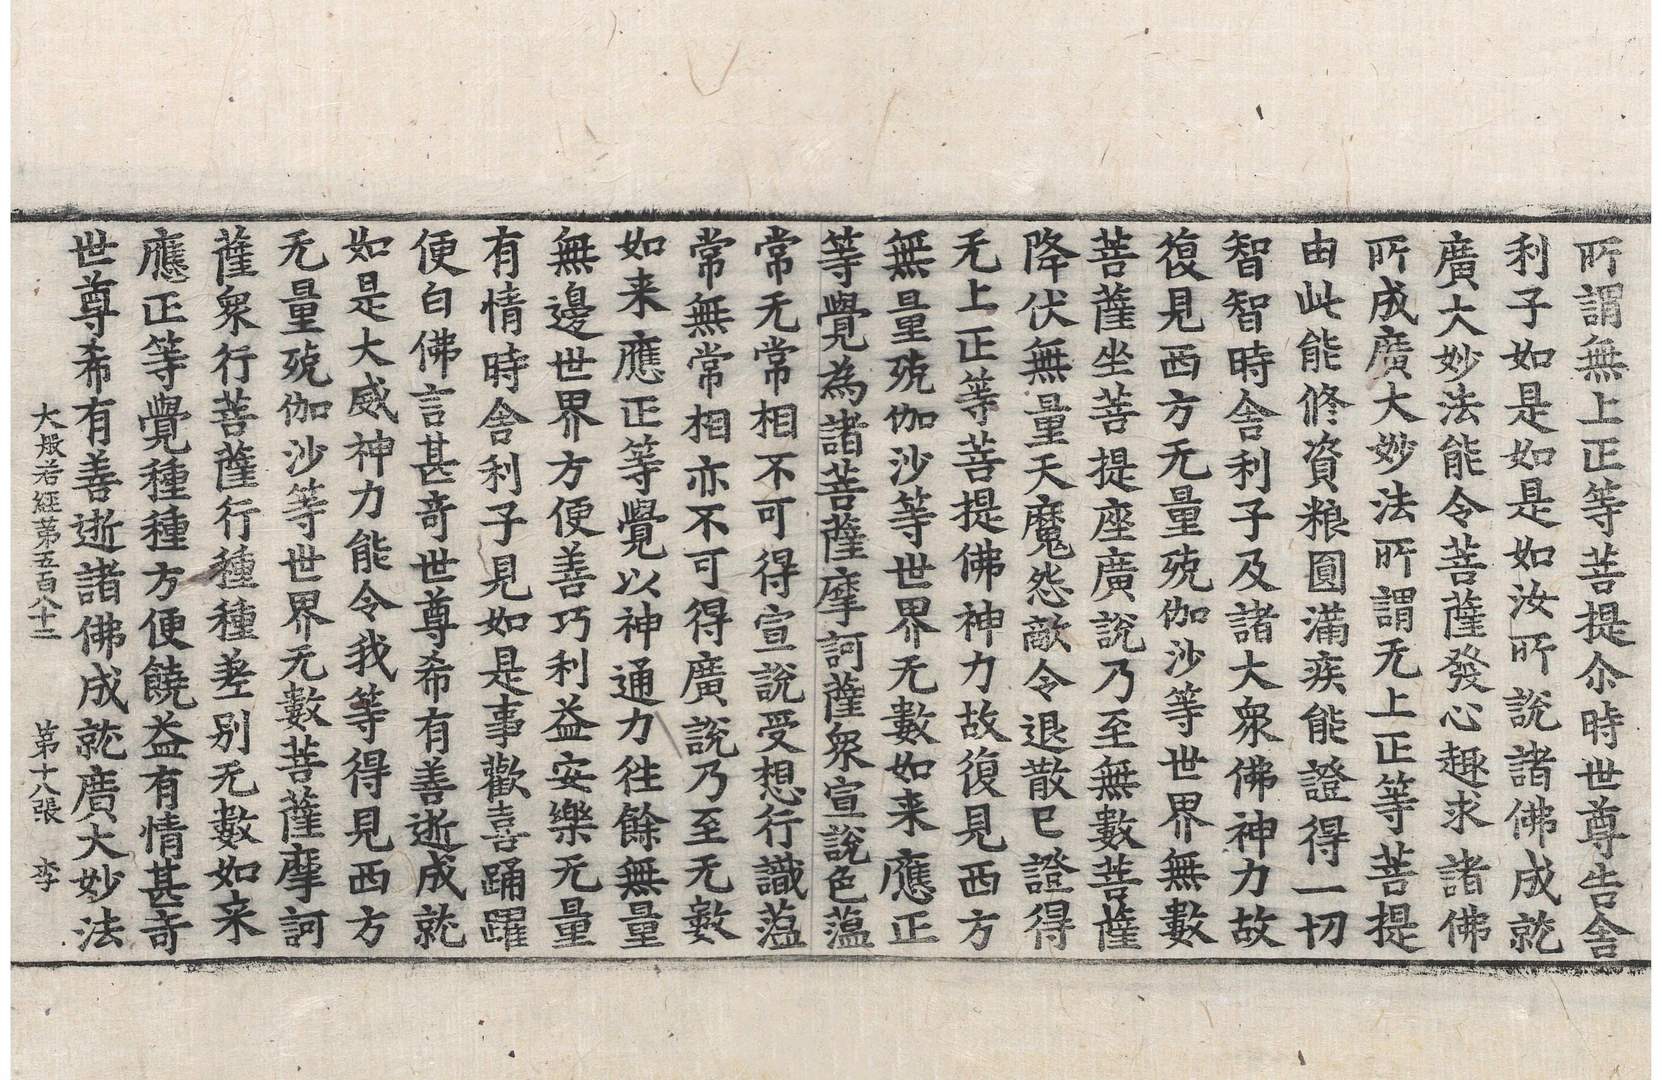 所謂無上正等菩提尒時世尊告舍
利子如是如是如汝所說諸佛成就
廣大妙法能令菩薩發心趣求諸佛
所成廣大妙法所謂无上正等菩提
由此能修資粮圓滿疾能證得一切
智智時舍利子及諸大衆佛神力故
復見西方无量殑伽沙等世界無數
菩薩坐菩提座廣說乃至無數菩薩
降伏無量天魔怨敵令退散已證得
无上正等菩提佛神力故復見西方
無量殑伽沙等世界无數如来應正
等覺為諸菩薩摩訶薩衆宣說色蕰
常无常相不可得宣說受想行識蕰
常無常相亦不可得廣說乃至无數
如来應正等覺以神通力往餘無量
無邊世界方便善巧利益安樂无量
有情時舍利子見如是事歡喜踊躍
便白佛言甚奇世尊希有善逝成就
如是大威神力能令我等得見西方
无量殑伽沙等世界无數菩薩摩訶
薩衆行菩薩行種種差别无數如来
應正等覺種種方便饒益有情甚奇
世尊希有善逝諸佛成就廣大妙法
大般若經苐五百八十二 苐十八張 李